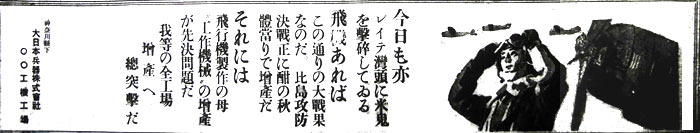 今日も亦
レイテ灣頭に米鬼
を擊碎してゐる
飛機あれば
この通りの大戰果
なのだ 比島攻防
決戰正に酣の秋
體當りで增產だ
それには
飛行機製作の母
〝工作機械〟の增產
が先決問題だ
我等の全工場
增產へ
總突擊だ
神奈川縣下
大日本兵器株式會社
〇〇工機工場